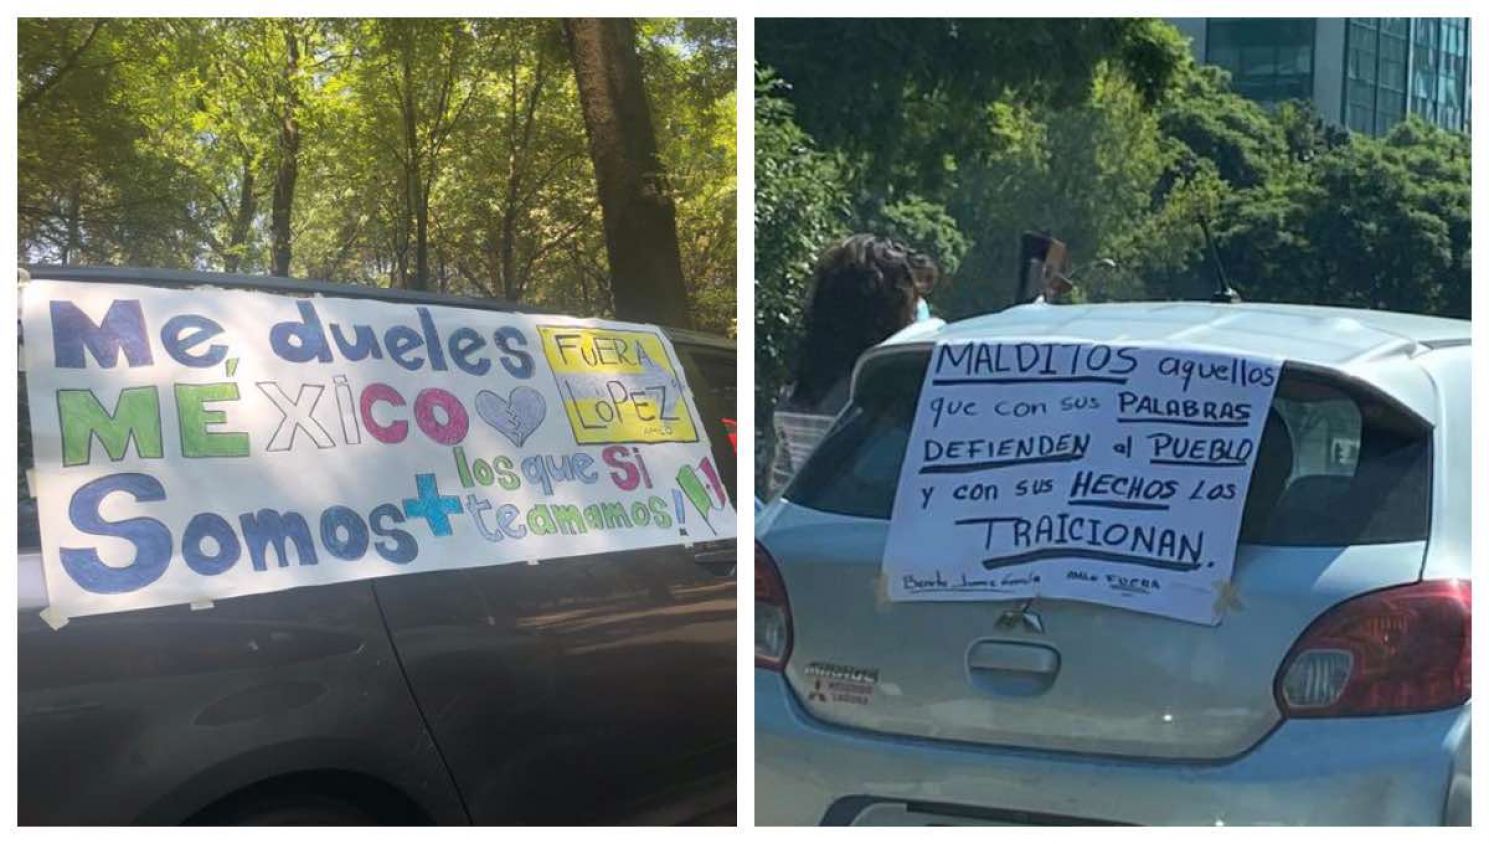 Me dueles
MÉXiCO
Somos +
los que Si
te amamos!
FUERA
LOPEZ
MALDITOS aquellos
que con sus PALABRAS
DEFIENDEN al PUEBLO
y con sus HECHOS LOS
TRAICIONAN.
Benito Juárez García
AMLO FUERA
MIRAGE